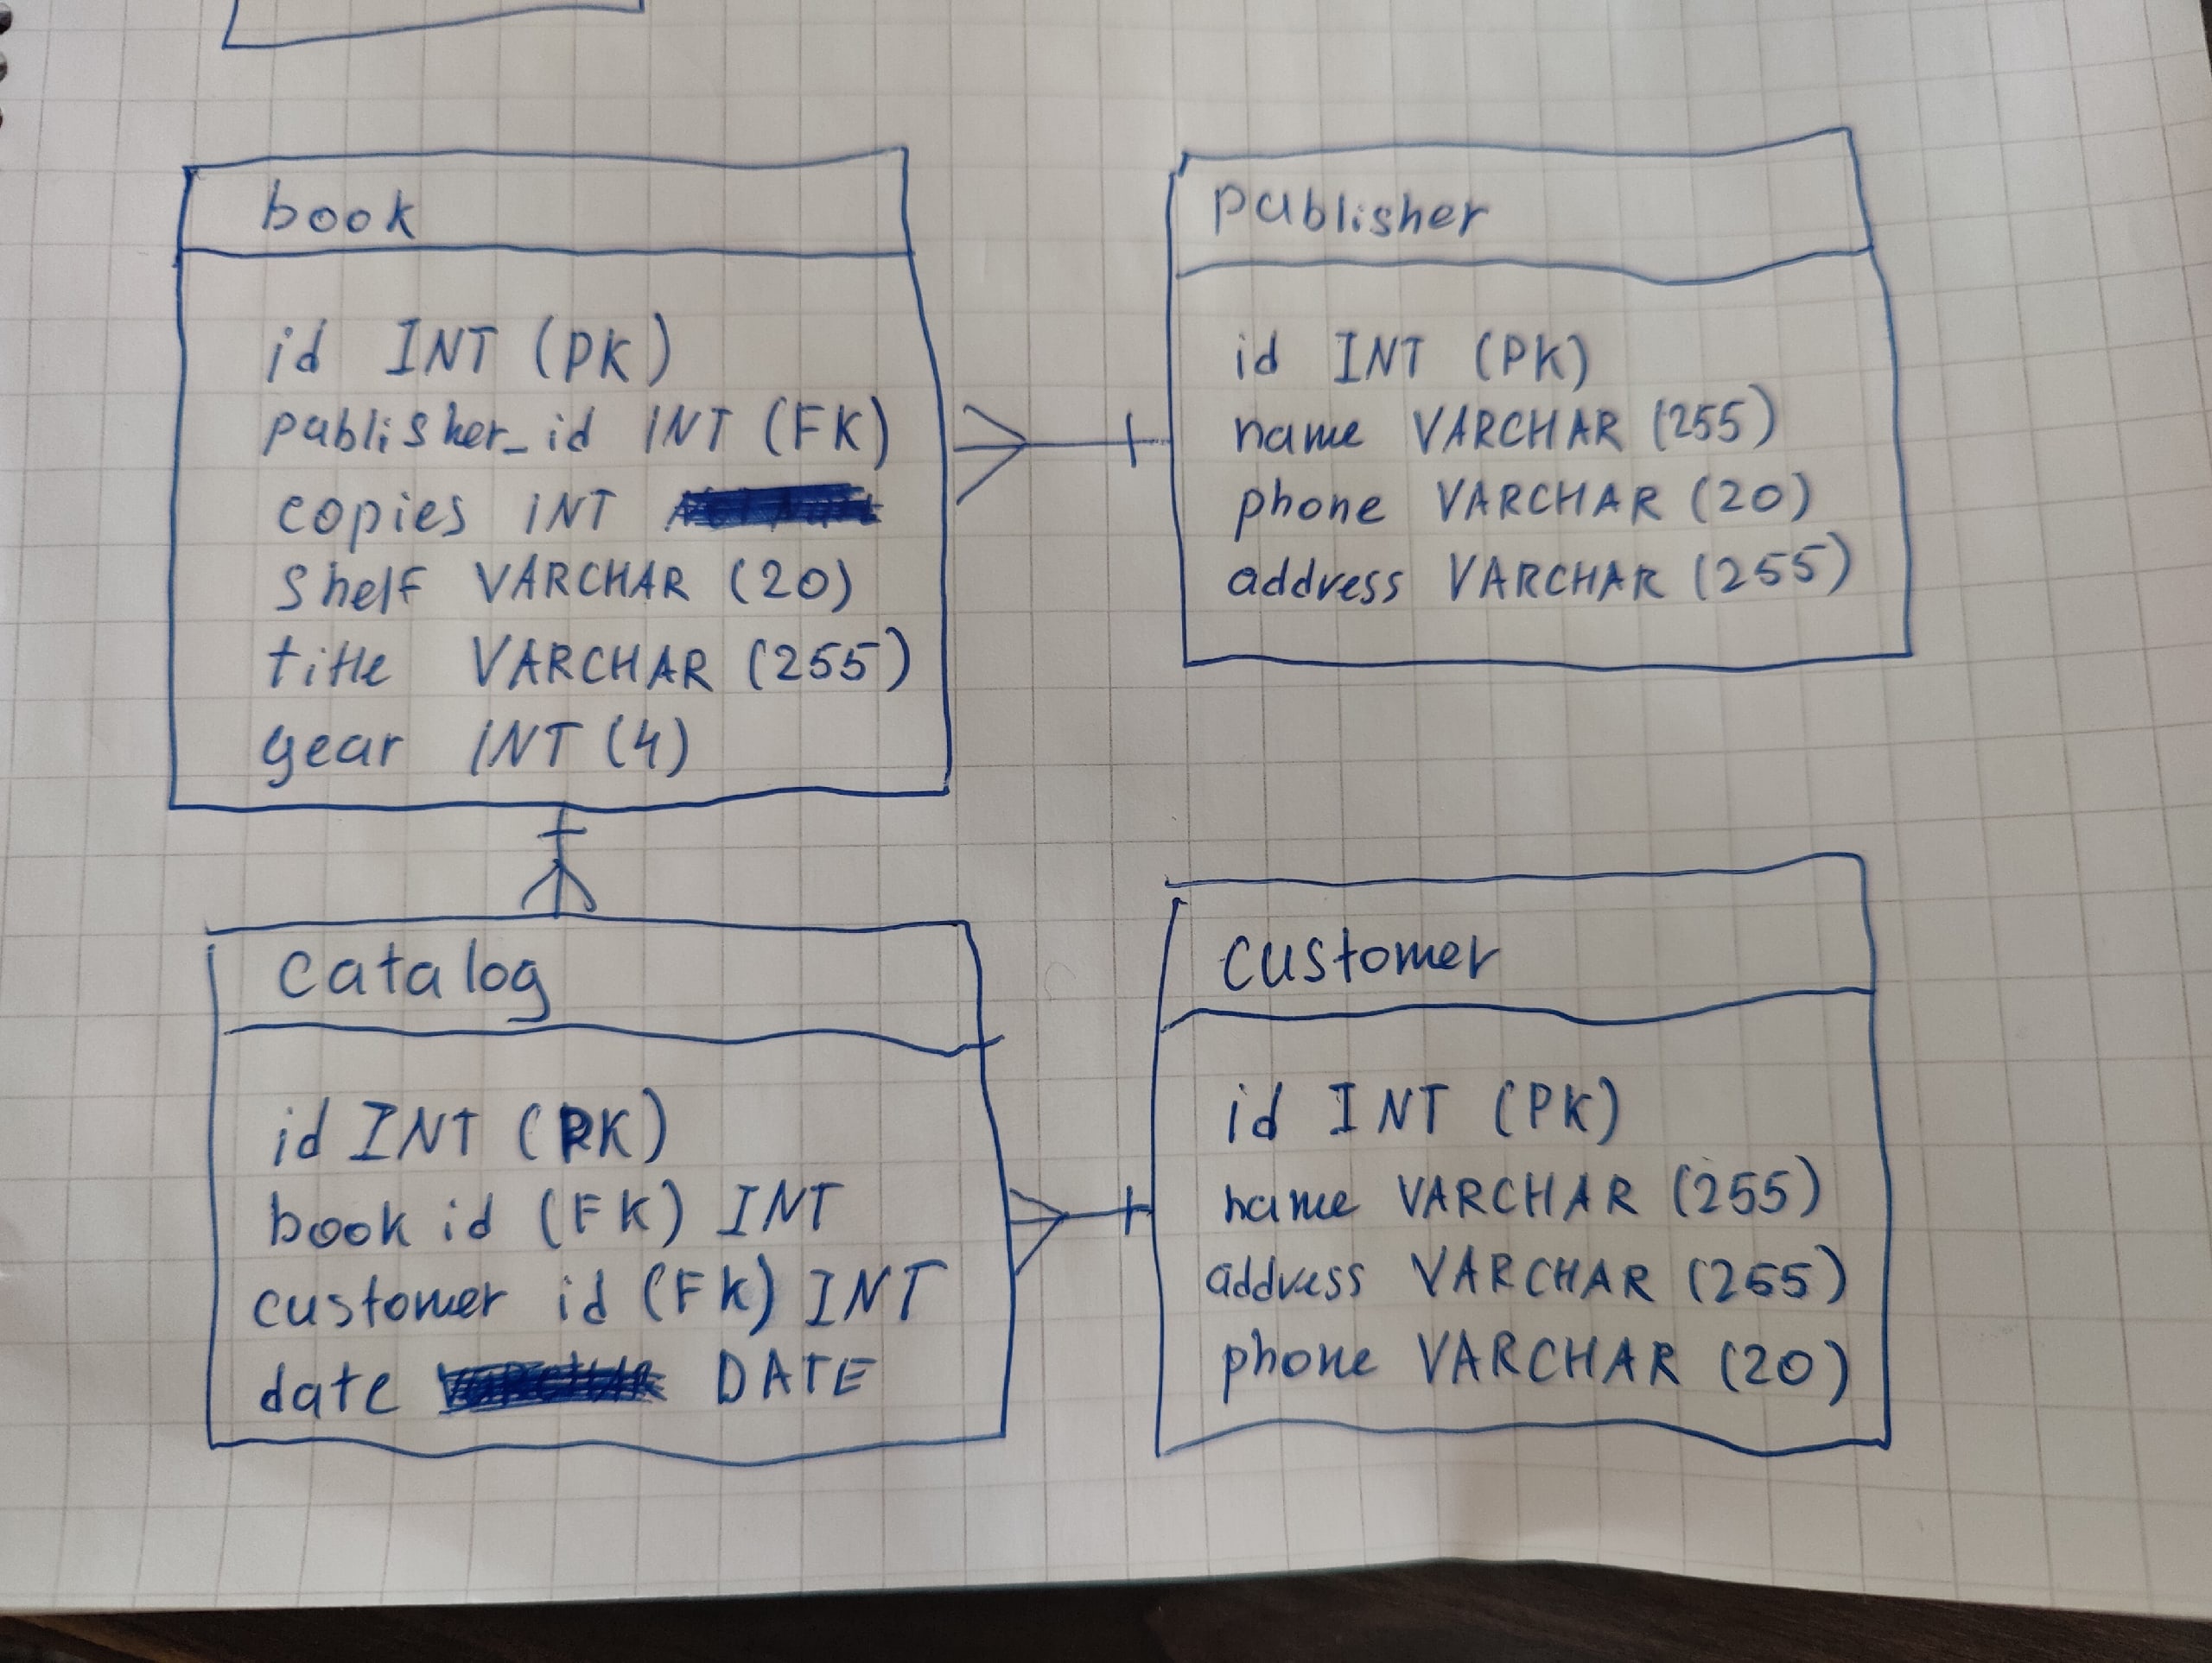 book
id INT (PK)
publisher_id INT (FK)
copies INT
shelf VARCHAR (20)
title VARCHAR (255)
year INT (4)
publisher
id INT (PK)
name VARCHAR (255)
phone VARCHAR (20)
address VARCHAR (255)
catalog
id INT (PK)
book id (FK) INT
customer id (FK) INT
date DATE
customer
id INT (PK)
name VARCHAR (255)
address VARCHAR (255)
phone VARCHAR (20)